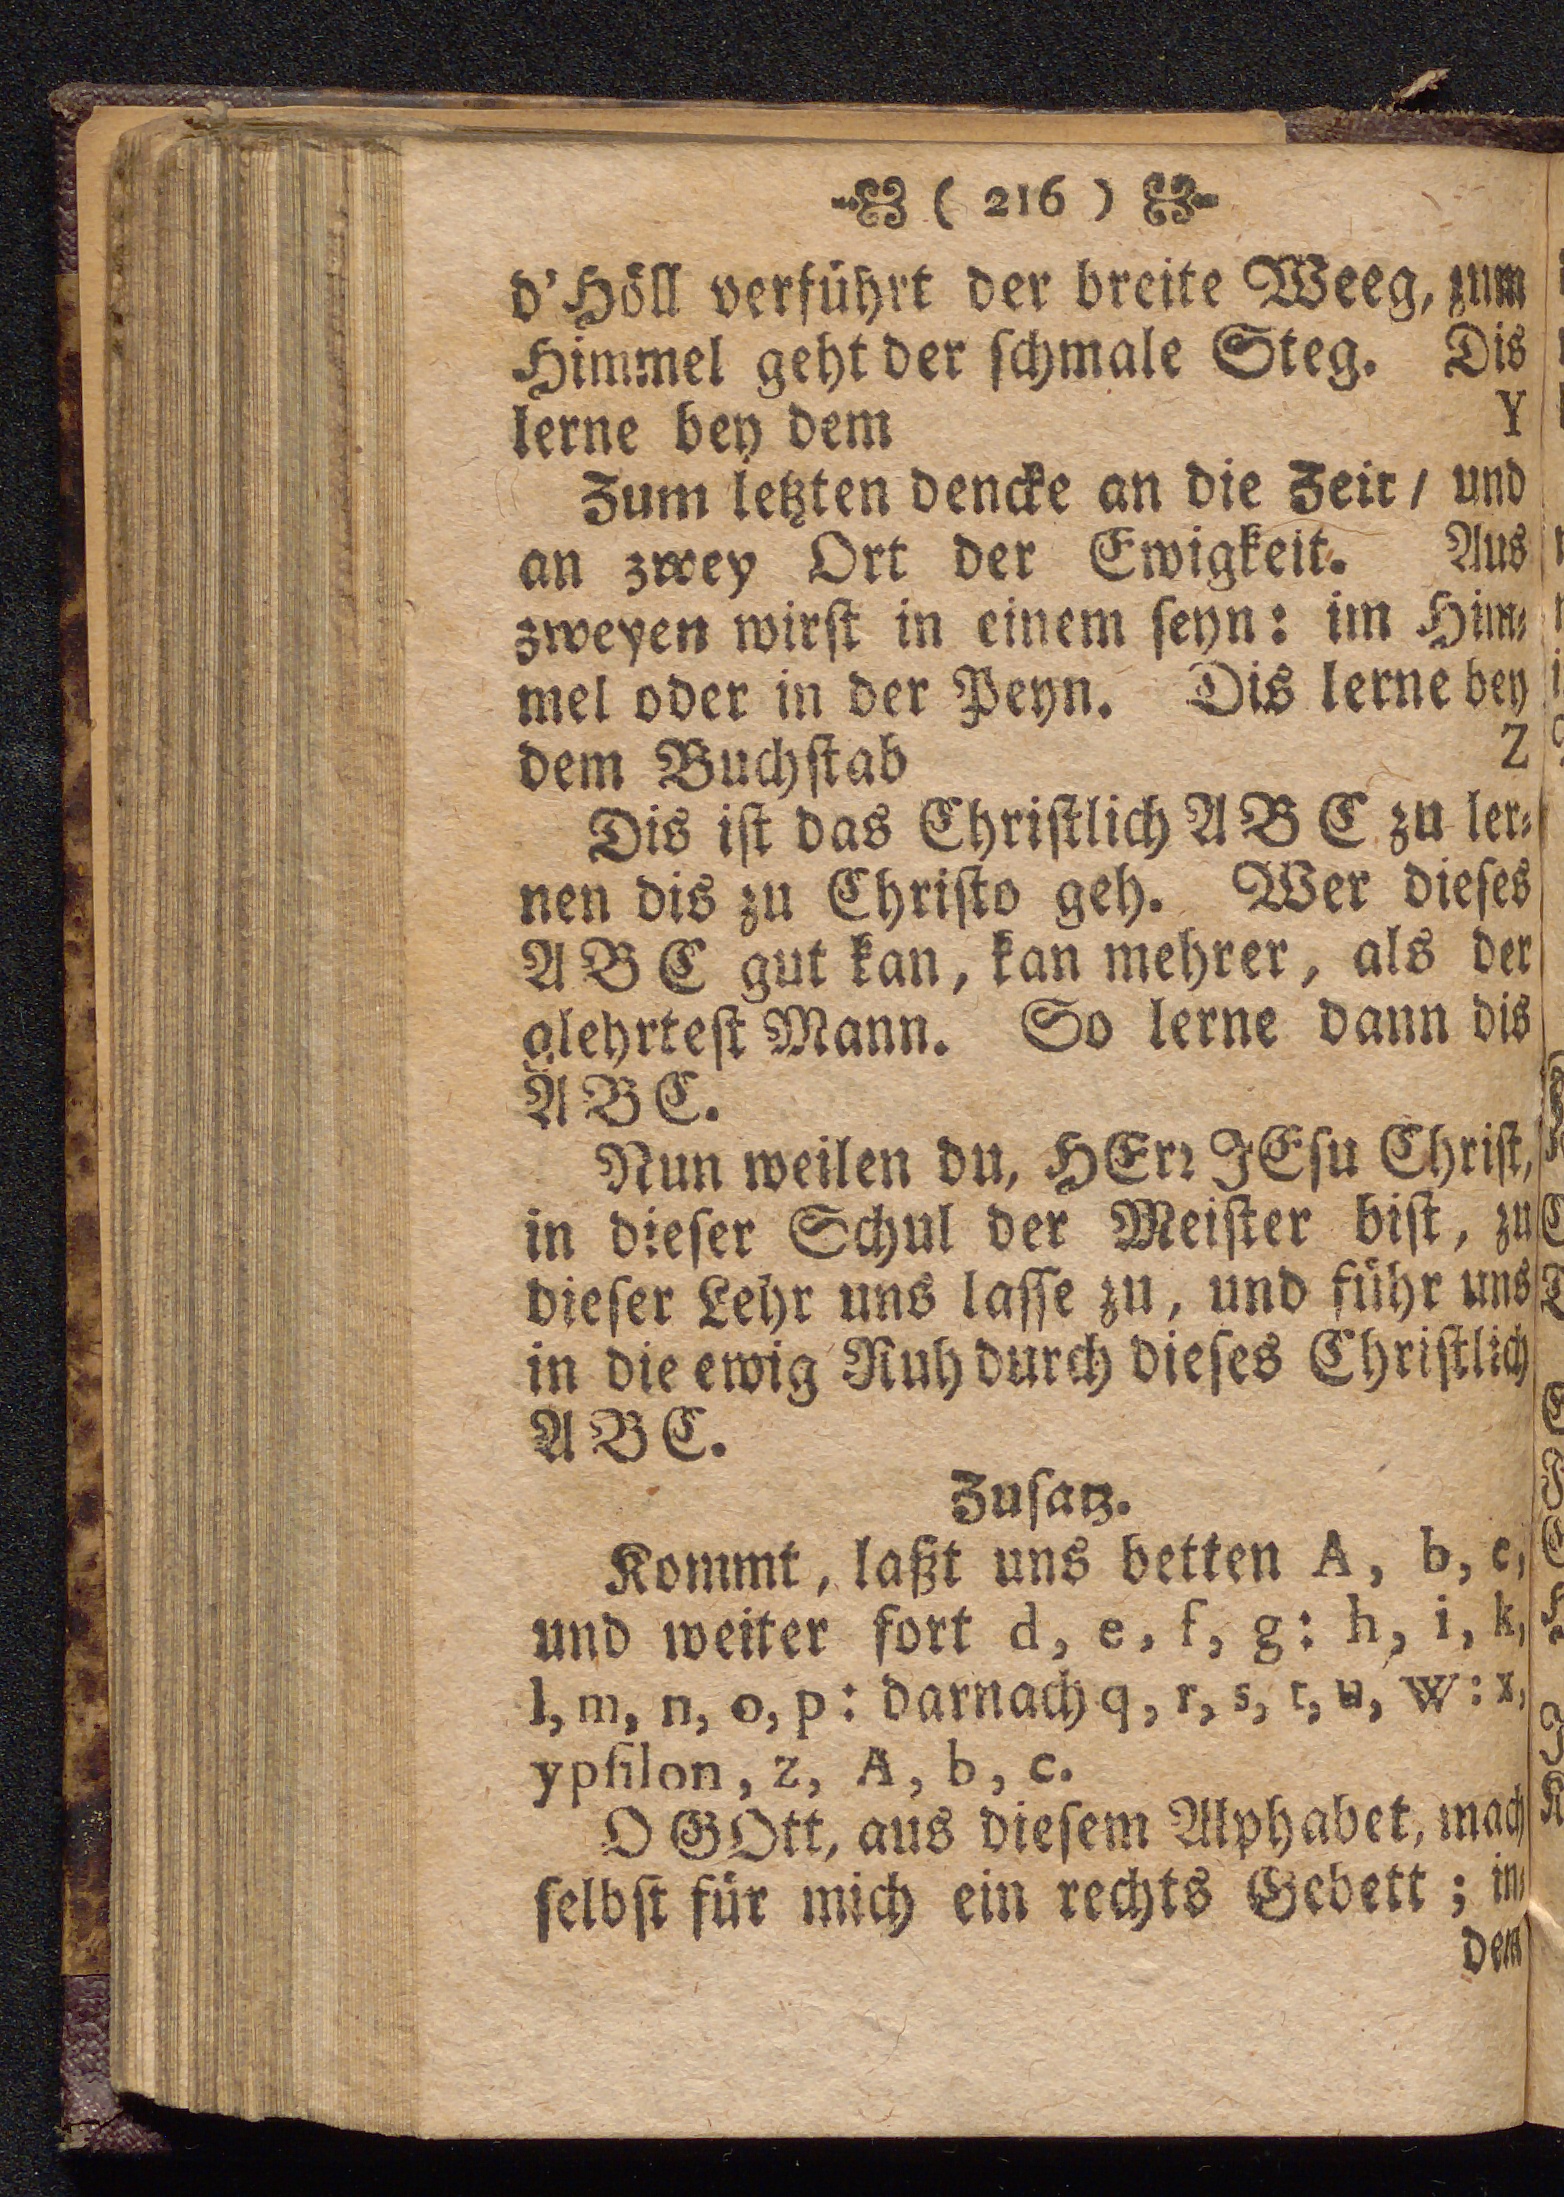 ( 216 )
d'Höll verführt der breite Weeg, zum
Himmel geht der schmale Steg. Dis
lerne bey dem Y
Zum letzten dencke an die Zeit / und
an zwey Ort der Ewigkeit. Aus
zweyen wirst in einem seyn: im Him-
mel oder in der Peyn. Dis lerne bey
dem Buchstab Z
Dis ist das Christlich A B C zu ler-
nen dis zu Christo geh. Wer dieses
A B C gut kan, kan mehrer, als der
glehrtest Mann. So lerne dann dis
A B C.
Nun weilen du, HErr JEsu Christ,
in dieser Schul der Meister bist, zu
dieser Lehr uns lasse zu, und führ uns
in die ewig Ruh durch dieses Christlich
A B C.
Zusatz.
Kommt, laßt uns betten A, b, c,
und weiter fort d, e, f, g: h, i, k,
l, m, n, o, p: darnach q, r, s, t, u, w: x,
ypsilon, z, A, b, c.
O GOtt, aus diesem Alphabet, mach
selbst für mich ein rechts Gebett; in-
dem